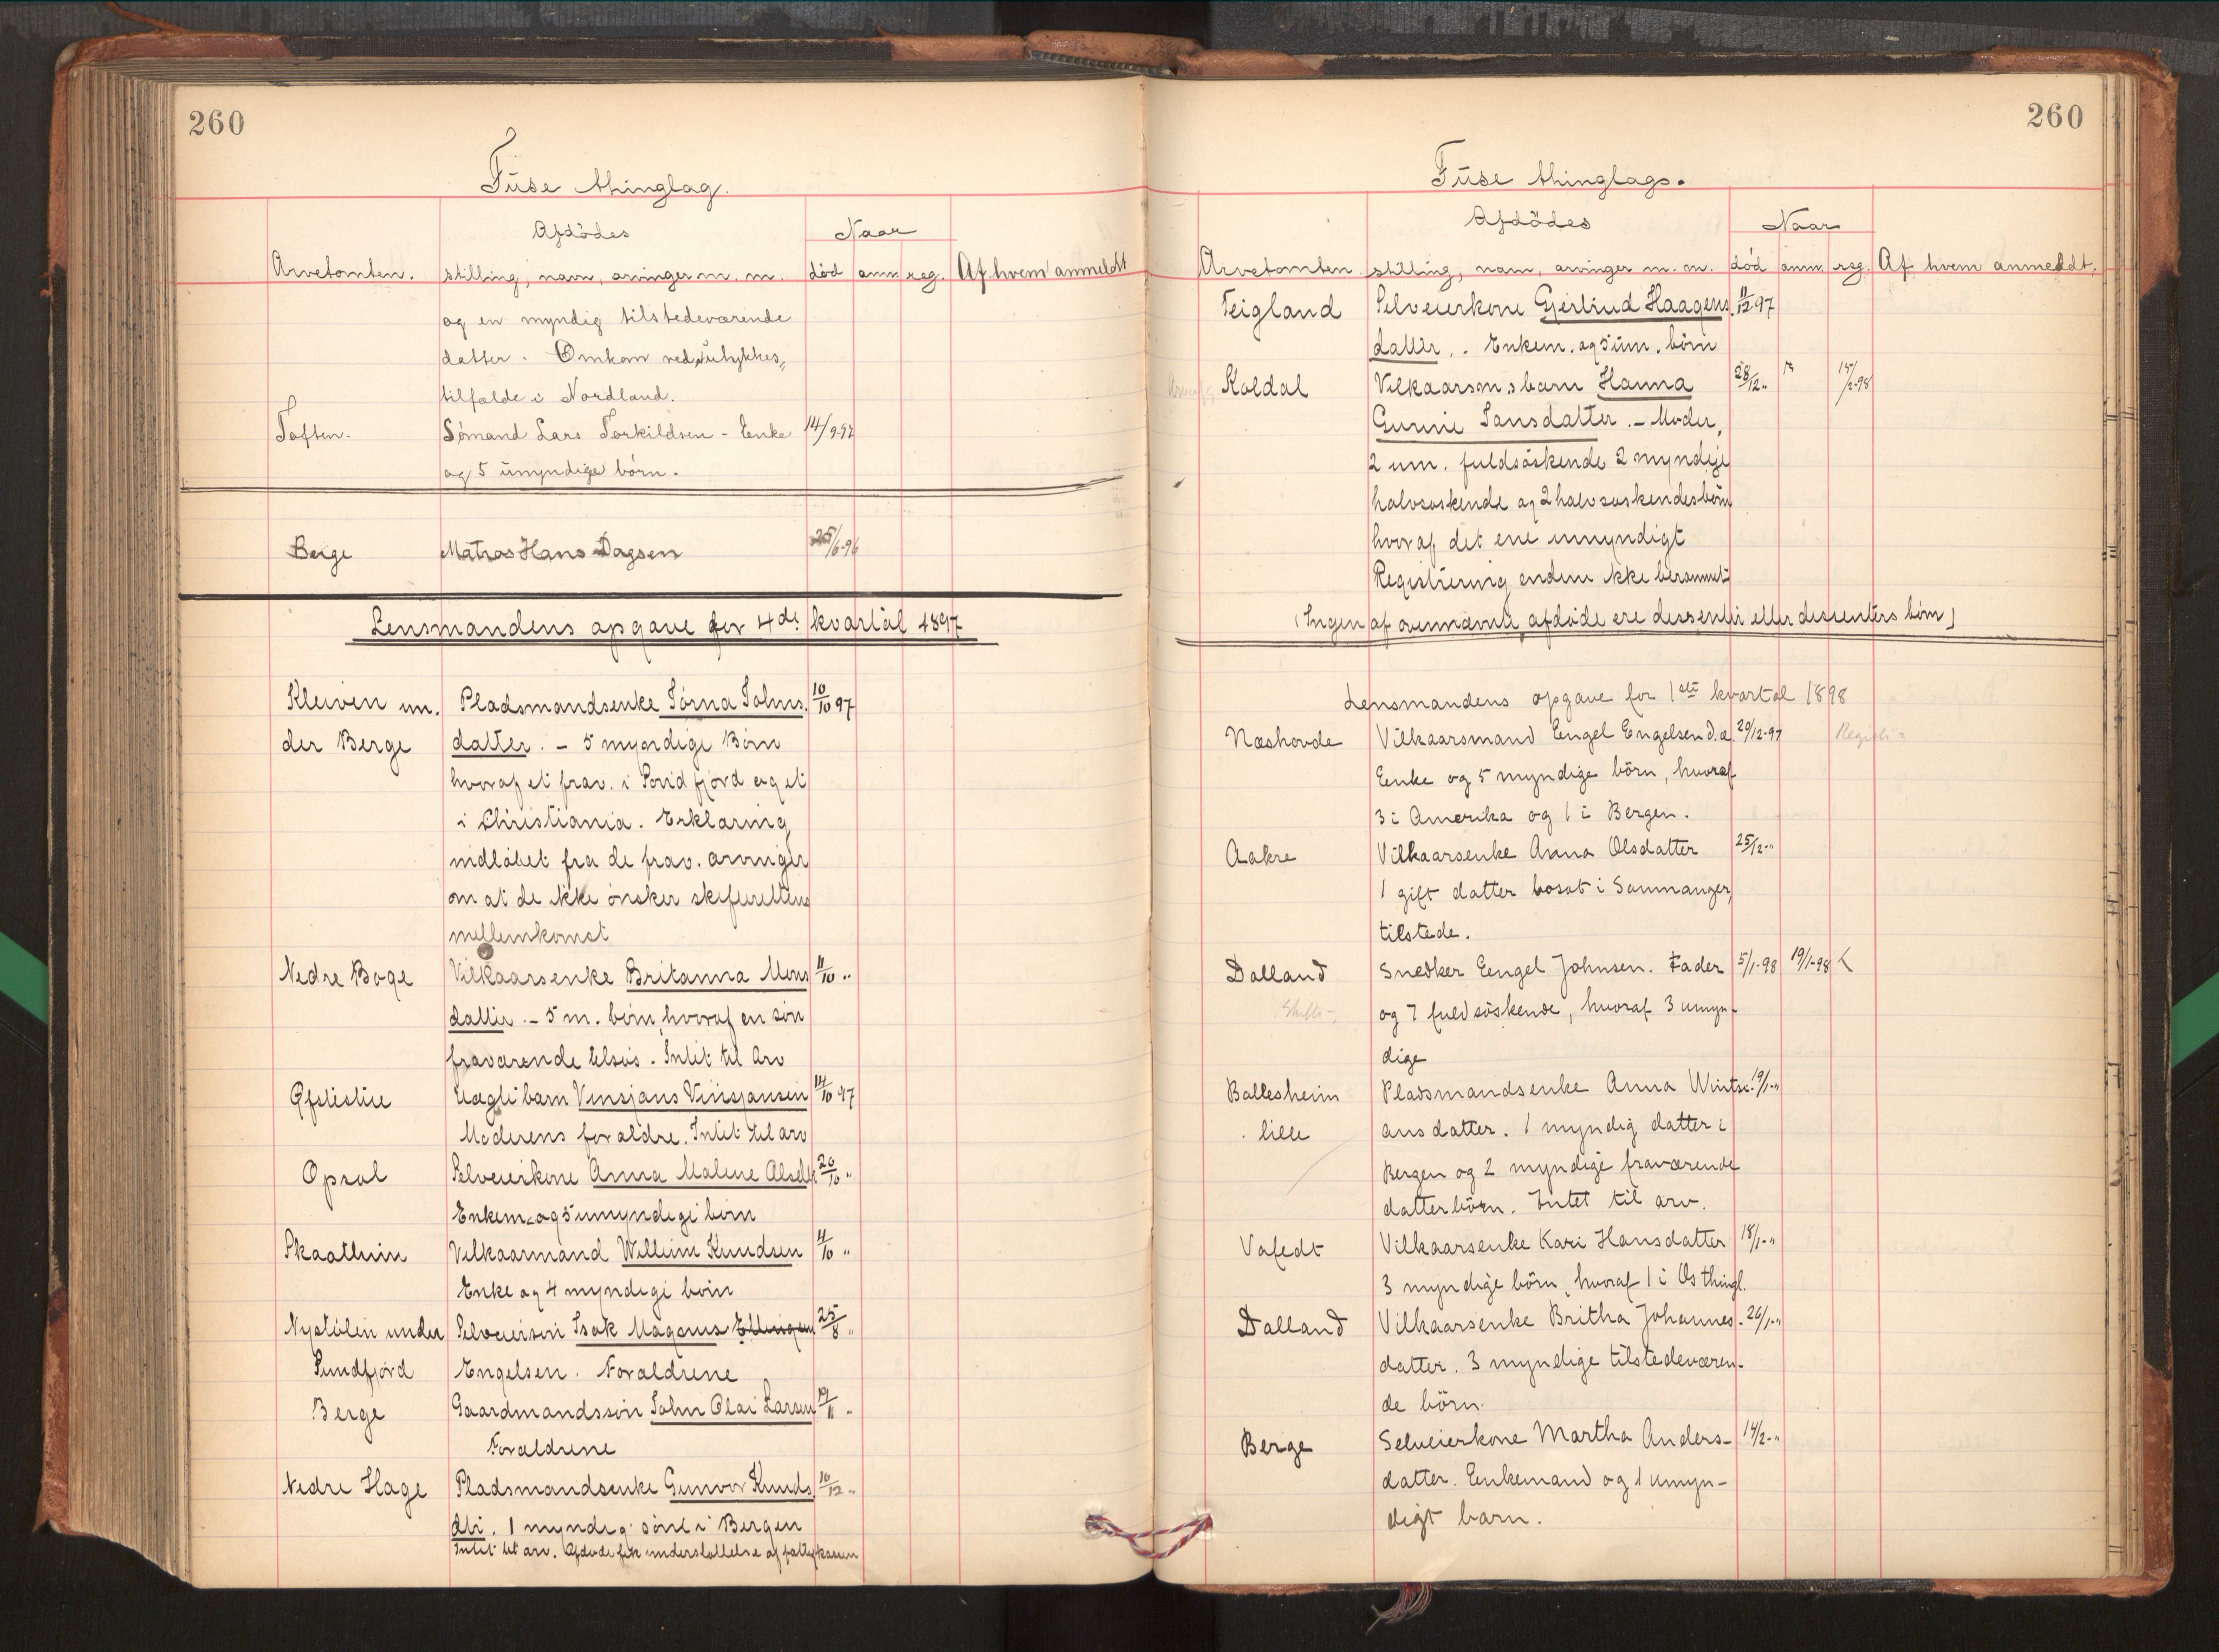 260
Fuse thinglag.
Afdödes
Naar
Arvetomten. stilling, navn, arvinger m. m. död anm. reg. Af hvem anmeldt
og en myndig tilstedeværende
datter. Omkom ved ulykkes„
tilfælde i Nordland.
Toften. Sömand Lars Torkildsen - Enke 14/9-97
og 5 umyndige börn.
Berge Matros Hans Dagsen 25/6-96
Lensmandens opgave for 4de kvartal 1897
Kleiven un. Pladsmandsenke Jörna Johns. 10/10 97
der Berge datter. - 5 myndige Börn
hvoraf et frav. i Söndfjord og et
i Christiania. Erklæring
indlöbet fra de frav. arvinger
om at de ikke önsker skifterettens
mellemkomst
Nedre Boge Vilkaarsenke Britanna Mons 11/10 "
datter. - 5 m. börn, hvoraf en sön
fraværende tilsös. Intet til Arv
Uægte barn Vinsjans Vinsjansen 14/10 97
Moderens forældre. Intet til arv
Opsal Selveierkone Anna Malene Olsdtr 20/10 "
Enkem. og 5 umyndige börn
Skaathein Vilkaarmand Willum Knudsen 4/10 "
Enke og 4 myndige börn
Nystölen under Selveiersön Isak Magnus Ellingsen 25/8 "
Sundfjord Engelsen. Forældrene
Berge Gaardmandssön John Olai Larsen 19/11 "
Forældrene
Nedre Hage Pladsmandsenke Gunvor Knuds 10/12 "
dtr. 1 myndig sön i Bergen
Intet til arv. Afdöde fik understöttelse af fattigkassen
260
Fuse thinglags.
Afdödes
Naar
Arvetomten stilling, navn, arvinger m. m. död anm. reg. Af hvem anmeldt.
Teigland Selveierkone Gjertrud Haagens. 11/12 97
datter. Enkem. og 5 um. börn
Koldal Vilkaarsm.s barn Hanna 28/12 "
Gurine Jansdatter. - Moder,
2 um. fuldsöskende 2 myndige
halvsöskende og 2 halvsöskendesbörn
hvoraf det ene umyndigt
Registrering endnu ikke berammet
(Ingen af ovennævnte afdöde ere dessenter eller dessenters börn)
Lensmandens opgave for 1ste kvartal 1898
Næshovde Vilkaarsmand Engel Engelsen d.æ. 20/12-97
Enke og 5 myndige börn, hvoraf
3 i Amerika og 1 i Bergen.
Aakre Vilkaarsenke Anna Olsdatter 25/12-"
1 gift datter bosat i Samnanger,
tilstede.
Dalland Snedker Engel Johnsen. Fader 5/1-98 19/1-98
og 7 fuldsöskende, hvoraf 3 umyn-
dige
Ballesheim Pladsmandsenke Anna Wintsi. 19/1-"
lille ansdatter. 1 myndig datter i
Bergen og 2 myndige fraværende
datterbörn. Intet til arv.
Vafedt Vilkaarsenke Kari Hansdatter 18/1-"
3 myndige börn, hvoraf 1 i Os thingl.
Dalland Vilkaarsenke Britha Johannes- 26/1-"
datter. 3 myndige tilstedeværen-
de börn.
Berge Selveierkone Martha Anders- 14/2-"
datter. Enkemand og 1 umyn-
digt barn.